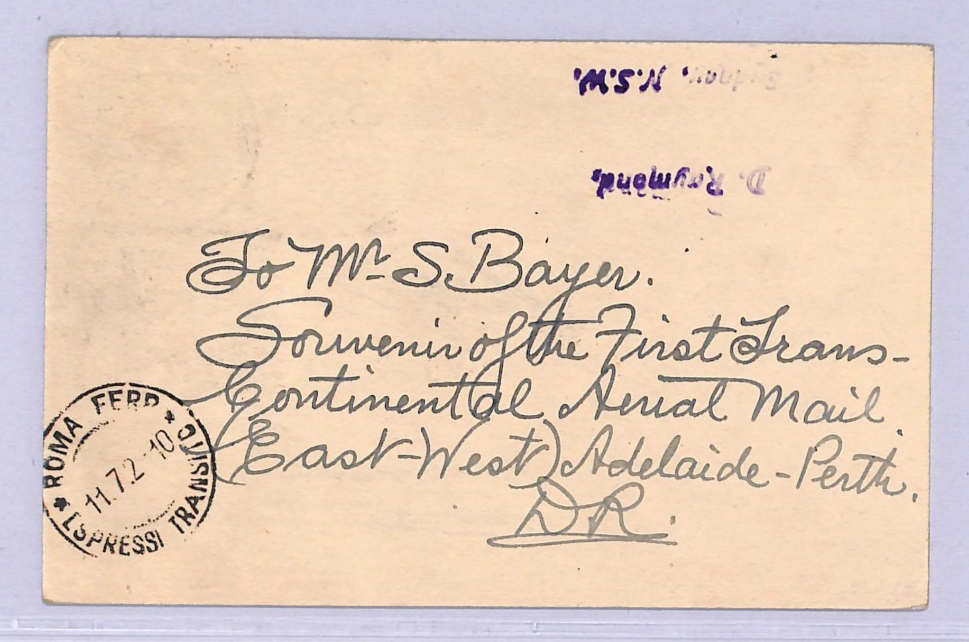 Sydney, N.S.W.
D. Raymond,
To Mr. S. Bayer.
Souvenir of the First Trans-
Continental Aerial Mail.
(East-West) Adelaide-Perth.
D.R.
* ROMA FERR * 
11.7.2 - 10
ESPRESSI TRANSITO